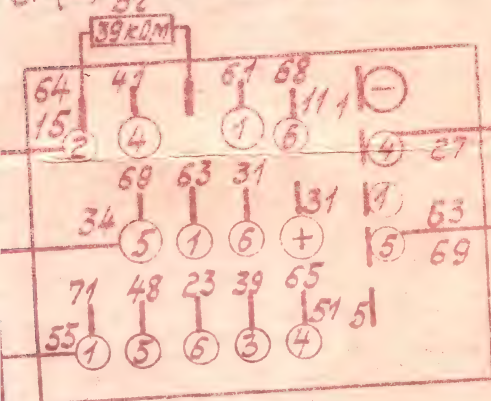 39кОм
64 41 61 68
15 11 1 −
2 4 1 6 4 27
69 63 31 31 1
34 5 1 6 + 5 63
69
71 48 23 39 65
51 5
55 1 5 6 3 4